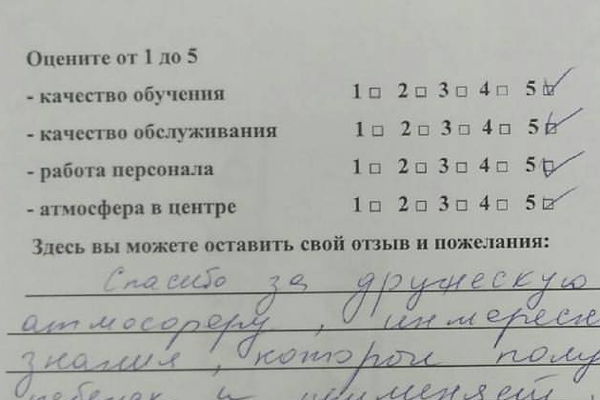 Оцените от 1 до 5
- качество обучения 1 □ 2 □ 3 □ 4 □ 5 ☑
- качество обслуживания 1 □ 2 □ 3 □ 4 □ 5 ☑
- работа персонала 1 □ 2 □ 3 □ 4 □ 5 ☑
- атмосфера в центре 1 □ 2 □ 3 □ 4 □ 5 ☑
Здесь вы можете оставить свой отзыв и пожелания:
Спасибо за дружескую
атмосферу, интересн
знания, которой полу
ребенок и применяет